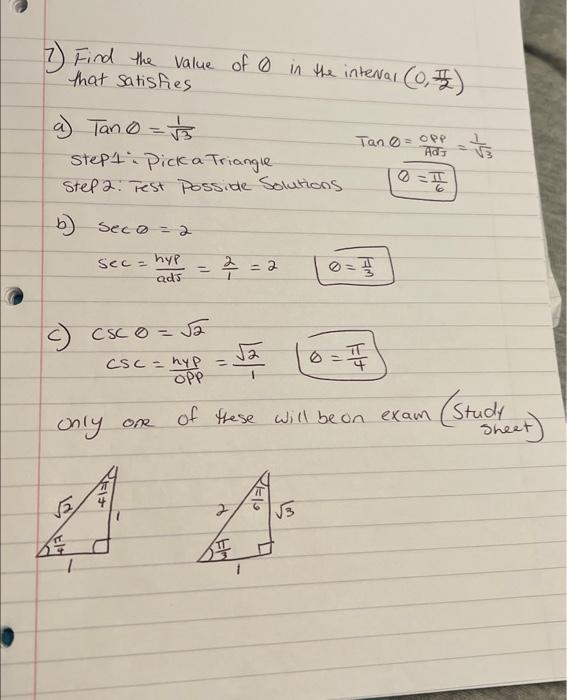 7) Find the value of θ in the interval (0, π/2)
that satisfies
a) Tan θ = 1/√3
Tan θ = OPP/Adj = 1/√3
Step 1: Pick a Triangle
Step 2: Test Posside Solutions
θ = π/6
b) sec θ = 2
sec = hyp/adj = 2/1 = 2
θ = π/3
c) csc θ = √2
csc = hyp/opp = √2/1
θ = π/4
only one of these will be on exam (Study
Sheet)
√2
π/4
1
π/4
1
2
π/6
√3
π/3
1